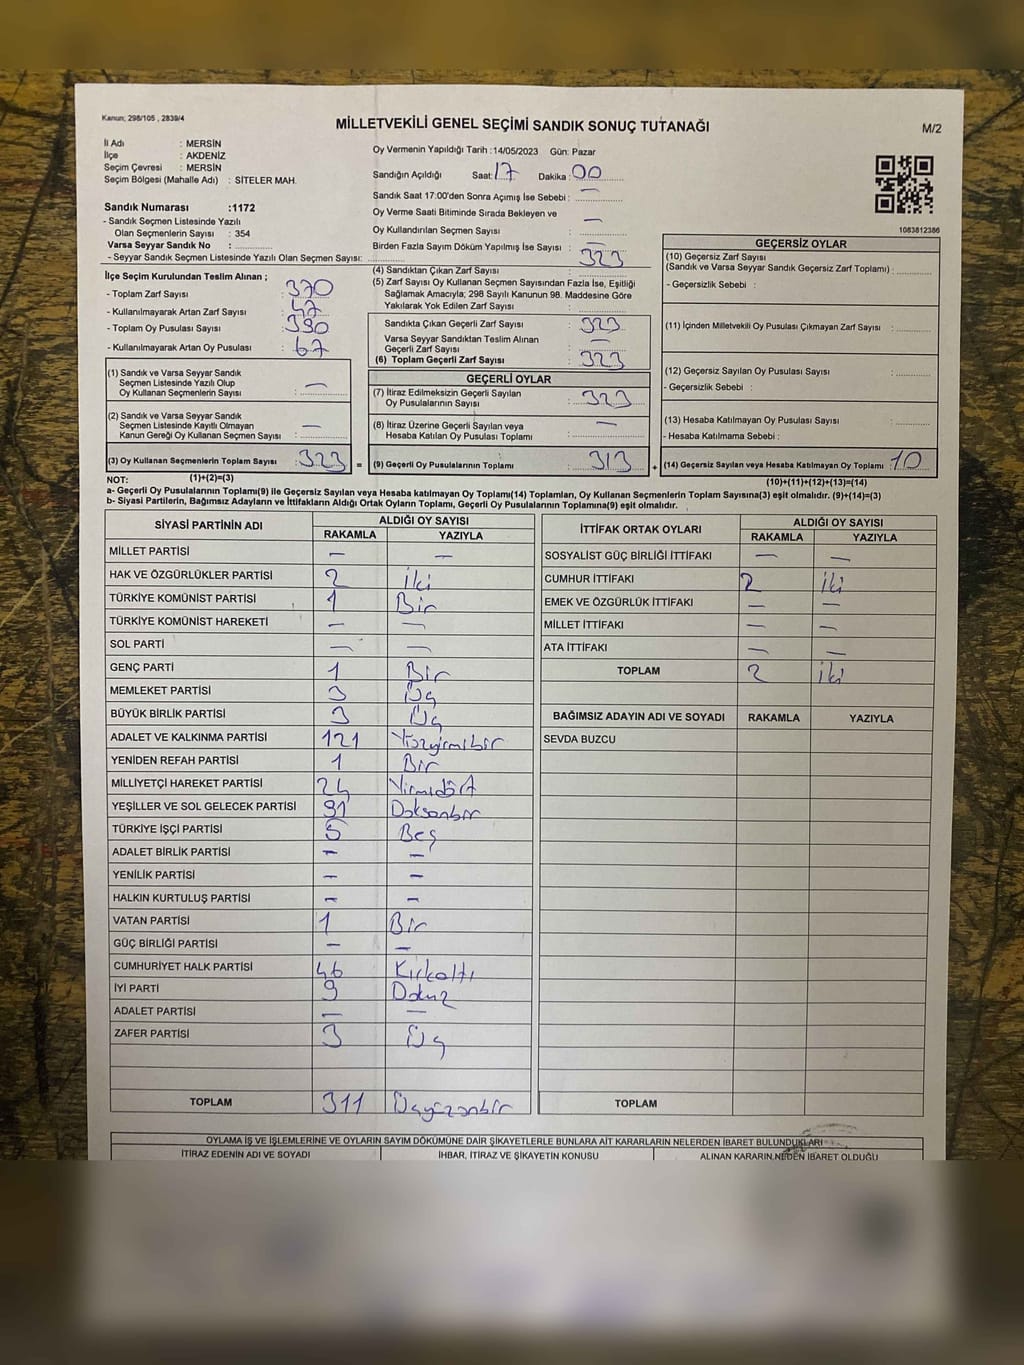 Kanun; 298/105 , 2839/4
MİLLETVEKİLİ GENEL SEÇİMİ SANDIK SONUÇ TUTANAĞI
M/2
İl Adı : MERSİN
İlçe : AKDENİZ
Seçim Çevresi : MERSİN
Seçim Bölgesi (Mahalle Adı) : SİTELER MAH.
Sandık Numarası :1172
- Sandık Seçmen Listesinde Yazılı
Olan Seçmenlerin Sayısı : 354
Varsa Seyyar Sandık No :
- Seyyar Sandık Seçmen Listesinde Yazılı Olan Seçmen Sayısı:
İlçe Seçim Kurulundan Teslim Alınan ;
- Toplam Zarf Sayısı : 370
- Kullanılmayarak Artan Zarf Sayısı : 47
- Toplam Oy Pusulası Sayısı : 390
- Kullanılmayarak Artan Oy Pusulası : 67
(1) Sandık ve Varsa Seyyar Sandık
Seçmen Listesinde Yazılı Olup
Oy Kullanan Seçmenlerin Sayısı : —
(2) Sandık ve Varsa Seyyar Sandık
Seçmen Listesinde Kayıtlı Olmayan
Kanun Gereği Oy Kullanan Seçmen Sayısı : —
(3) Oy Kullanan Seçmenlerin Toplam Sayısı : 323
Oy Vermenin Yapıldığı Tarih :14/05/2023 Gün: Pazar
Sandığın Açıldığı Saat: 17 Dakika : 00
Sandık Saat 17:00'den Sonra Açımış İse Sebebi : —
Oy Verme Saati Bitiminde Sırada Bekleyen ve
Oy Kullandırılan Seçmen Sayısı : —
Birden Fazla Sayım Döküm Yapılmış İse Sayısı : —
(4) Sandıktan Çıkan Zarf Sayısı : 323
(5) Zarf Sayısı Oy Kullanan Seçmen Sayısından Fazla İse, Eşitliği
Sağlamak Amacıyla; 298 Sayılı Kanunun 98. Maddesine Göre
Yakılarak Yok Edilen Zarf Sayısı :
Sandıkta Çıkan Geçerli Zarf Sayısı : 323
Varsa Seyyar Sandıktan Teslim Alınan
Geçerli Zarf Sayısı : —
(6) Toplam Geçerli Zarf Sayısı : 323
GEÇERLİ OYLAR
(7) İtiraz Edilmeksizin Geçerli Sayılan
Oy Pusulalarının Sayısı : 323
(8) İtiraz Üzerine Geçerli Sayılan veya
Hesaba Katılan Oy Pusulası Toplamı : —
= (9) Geçerli Oy Pusulalarının Toplamı : 313
1083812386
GEÇERSİZ OYLAR
(10) Geçersiz Zarf Sayısı
(Sandık ve Varsa Seyyar Sandık Geçersiz Zarf Toplamı) :
- Geçersizlik Sebebi :
(11) İçinden Milletvekili Oy Pusulası Çıkmayan Zarf Sayısı :
(12) Geçersiz Sayılan Oy Pusulası Sayısı :
- Geçersizlik Sebebi :
(13) Hesaba Katılmayan Oy Pusulası Sayısı :
- Hesaba Katılmama Sebebi :
+ (14) Geçersiz Sayılan veya Hesaba Katılmayan Oy Toplamı : 10
NOT: (1)+(2)=(3)
(10)+(11)+(12)+(13)=(14)
a- Geçerli Oy Pusulalarının Toplamı(9) ile Geçersiz Sayılan veya Hesaba katılmayan Oy Toplamı(14) Toplamları, Oy Kullanan Seçmenlerin Toplam Sayısına(3) eşit olmalıdır. (9)+(14)=(3)
b- Siyasi Partilerin, Bağımsız Adayların ve İttifakların Aldığı Ortak Oyların Toplamı, Geçerli Oy Pusulalarının Toplamına(9) eşit olmalıdır.
SİYASİ PARTİNİN ADI ALDIĞI OY SAYISI
RAKAMLA YAZIYLA
MİLLET PARTİSİ — —
HAK VE ÖZGÜRLÜKLER PARTİSİ 2 iki
TÜRKİYE KOMÜNİST PARTİSİ 1 Bir
TÜRKİYE KOMÜNİST HAREKETİ — —
SOL PARTİ — —
GENÇ PARTİ 1 Bir
MEMLEKET PARTİSİ 3 Üç
BÜYÜK BİRLİK PARTİSİ 3 Üç
ADALET VE KALKINMA PARTİSİ 121 Yüzyirmibir
YENİDEN REFAH PARTİSİ 1 Bir
MİLLİYETÇİ HAREKET PARTİSİ 24 Yirmidört
YEŞİLLER VE SOL GELECEK PARTİSİ 91 Doksanbir
TÜRKİYE İŞÇİ PARTİSİ 5 Beş
ADALET BİRLİK PARTİSİ — —
YENİLİK PARTİSİ — —
HALKIN KURTULUŞ PARTİSİ — —
VATAN PARTİSİ 1 Bir
GÜÇ BİRLİĞİ PARTİSİ — —
CUMHURİYET HALK PARTİSİ 46 Kırkaltı
İYİ PARTİ 9 Dokuz
ADALET PARTİSİ — —
ZAFER PARTİSİ 3 Üç
TOPLAM 311 Üçyüzonbir
İTTİFAK ORTAK OYLARI ALDIĞI OY SAYISI
RAKAMLA YAZIYLA
SOSYALİST GÜÇ BİRLİĞİ İTTİFAKI — —
CUMHUR İTTİFAKI 2 iki
EMEK VE ÖZGÜRLÜK İTTİFAKI — —
MİLLET İTTİFAKI — —
ATA İTTİFAKI — —
TOPLAM 2 iki
BAĞIMSIZ ADAYIN ADI VE SOYADI RAKAMLA YAZIYLA
SEVDA BUZCU
TOPLAM
OYLAMA İŞ VE İŞLEMLERİNE VE OYLARIN SAYIM DÖKÜMÜNE DAİR ŞİKAYETLERLE BUNLARA AİT KARARLARIN NELERDEN İBARET BULUNDUKLARI
İTİRAZ EDENİN ADI VE SOYADI İHBAR, İTİRAZ VE ŞİKAYETİN KONUSU ALINAN KARARIN NEDEN İBARET OLDUĞU